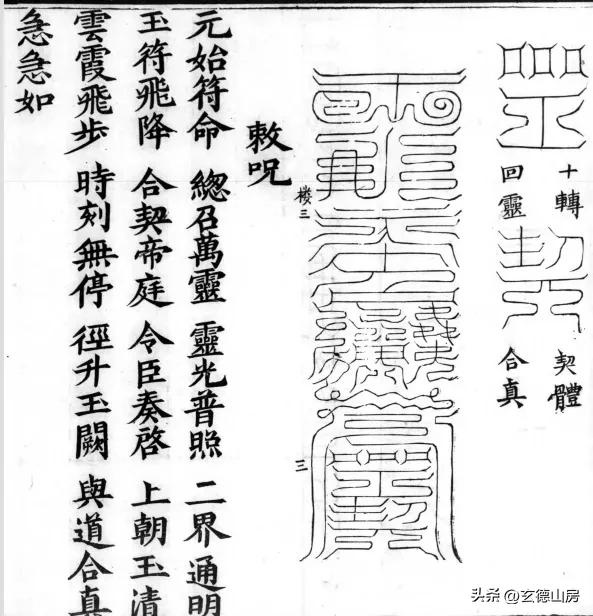 十轉
回靈
契體
合真
楼三
三
敕呪
元始符命 緫召萬靈 靈光普照 二界通明
玉符飛降 合契帝庭 令臣奏啓 上朝玉清
雲霞飛步 時刻無停 徑升玉闕 與道合真
急急如
头条 @玄德山房